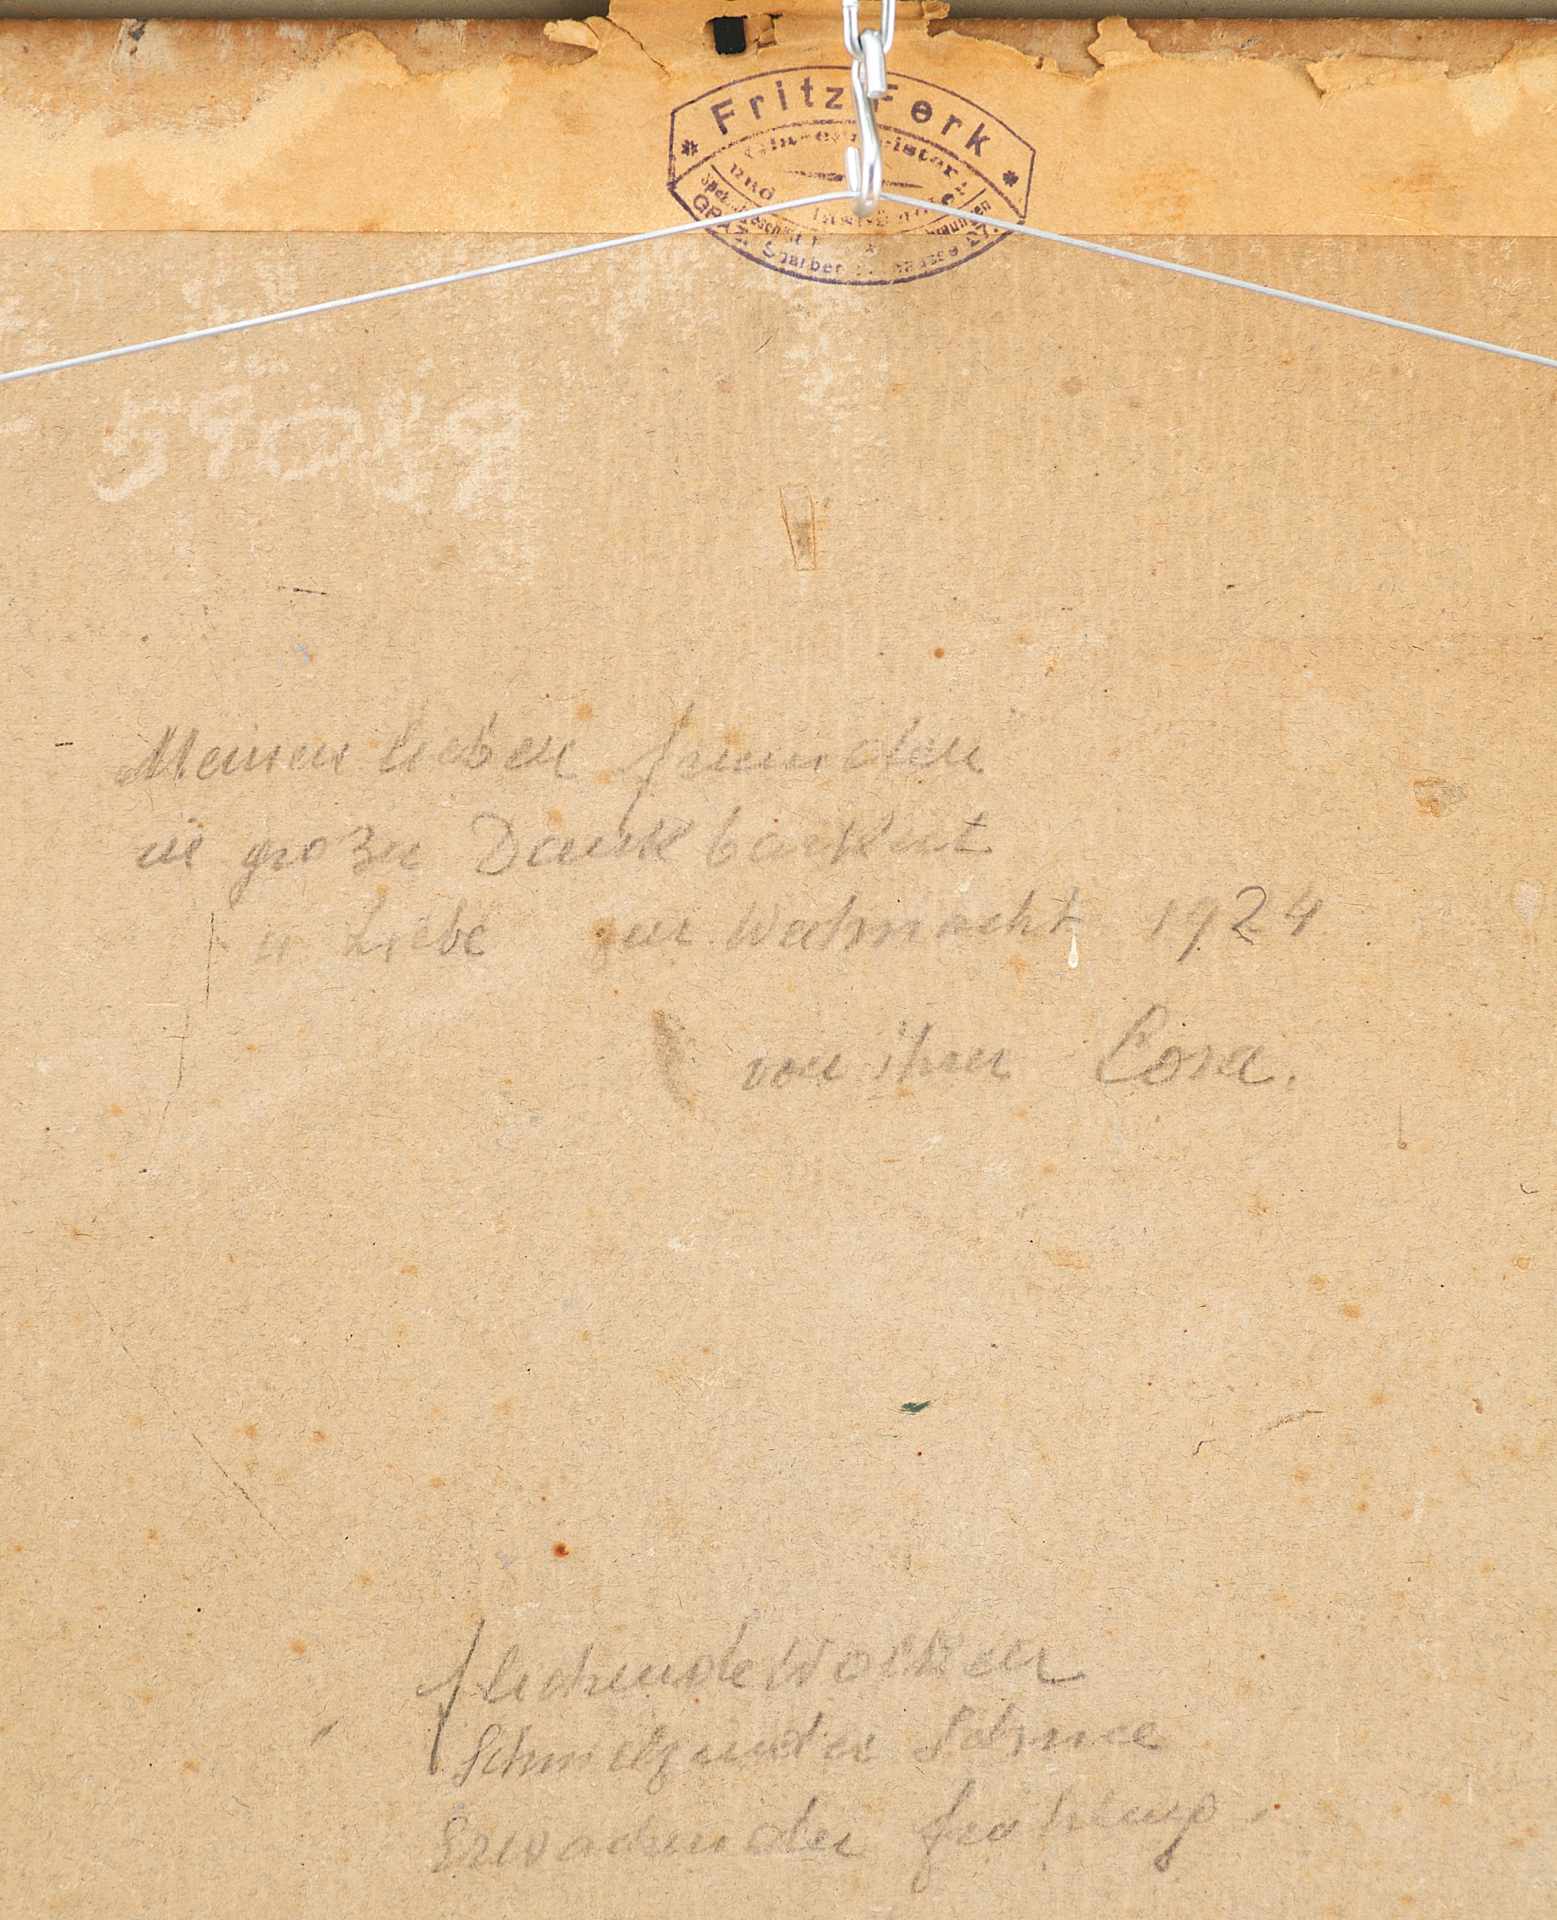 Fritz Ferk
GRAZ,
59049
Meinen lieben Freunden
in großer Dankbarkeit
u Liebe zur Weihnacht 1924
von ihrer Cora.
Fliehende Wolken
Schmelzender Schnee
Erwachender Frühling.